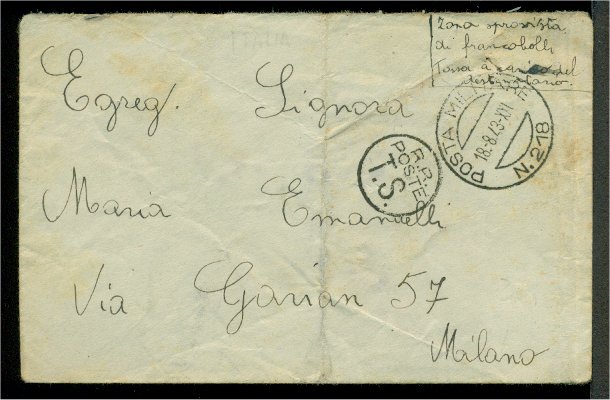 Zona sprovvista
di francobolli
Tassa a carico del
destinatario.
POSTA MILITARE
18.8.43.XXI
N.218
Egreg. Signora
R.R.
POSTE
T.S.
Maria Emanuelli
Via Gavian 57
Milano